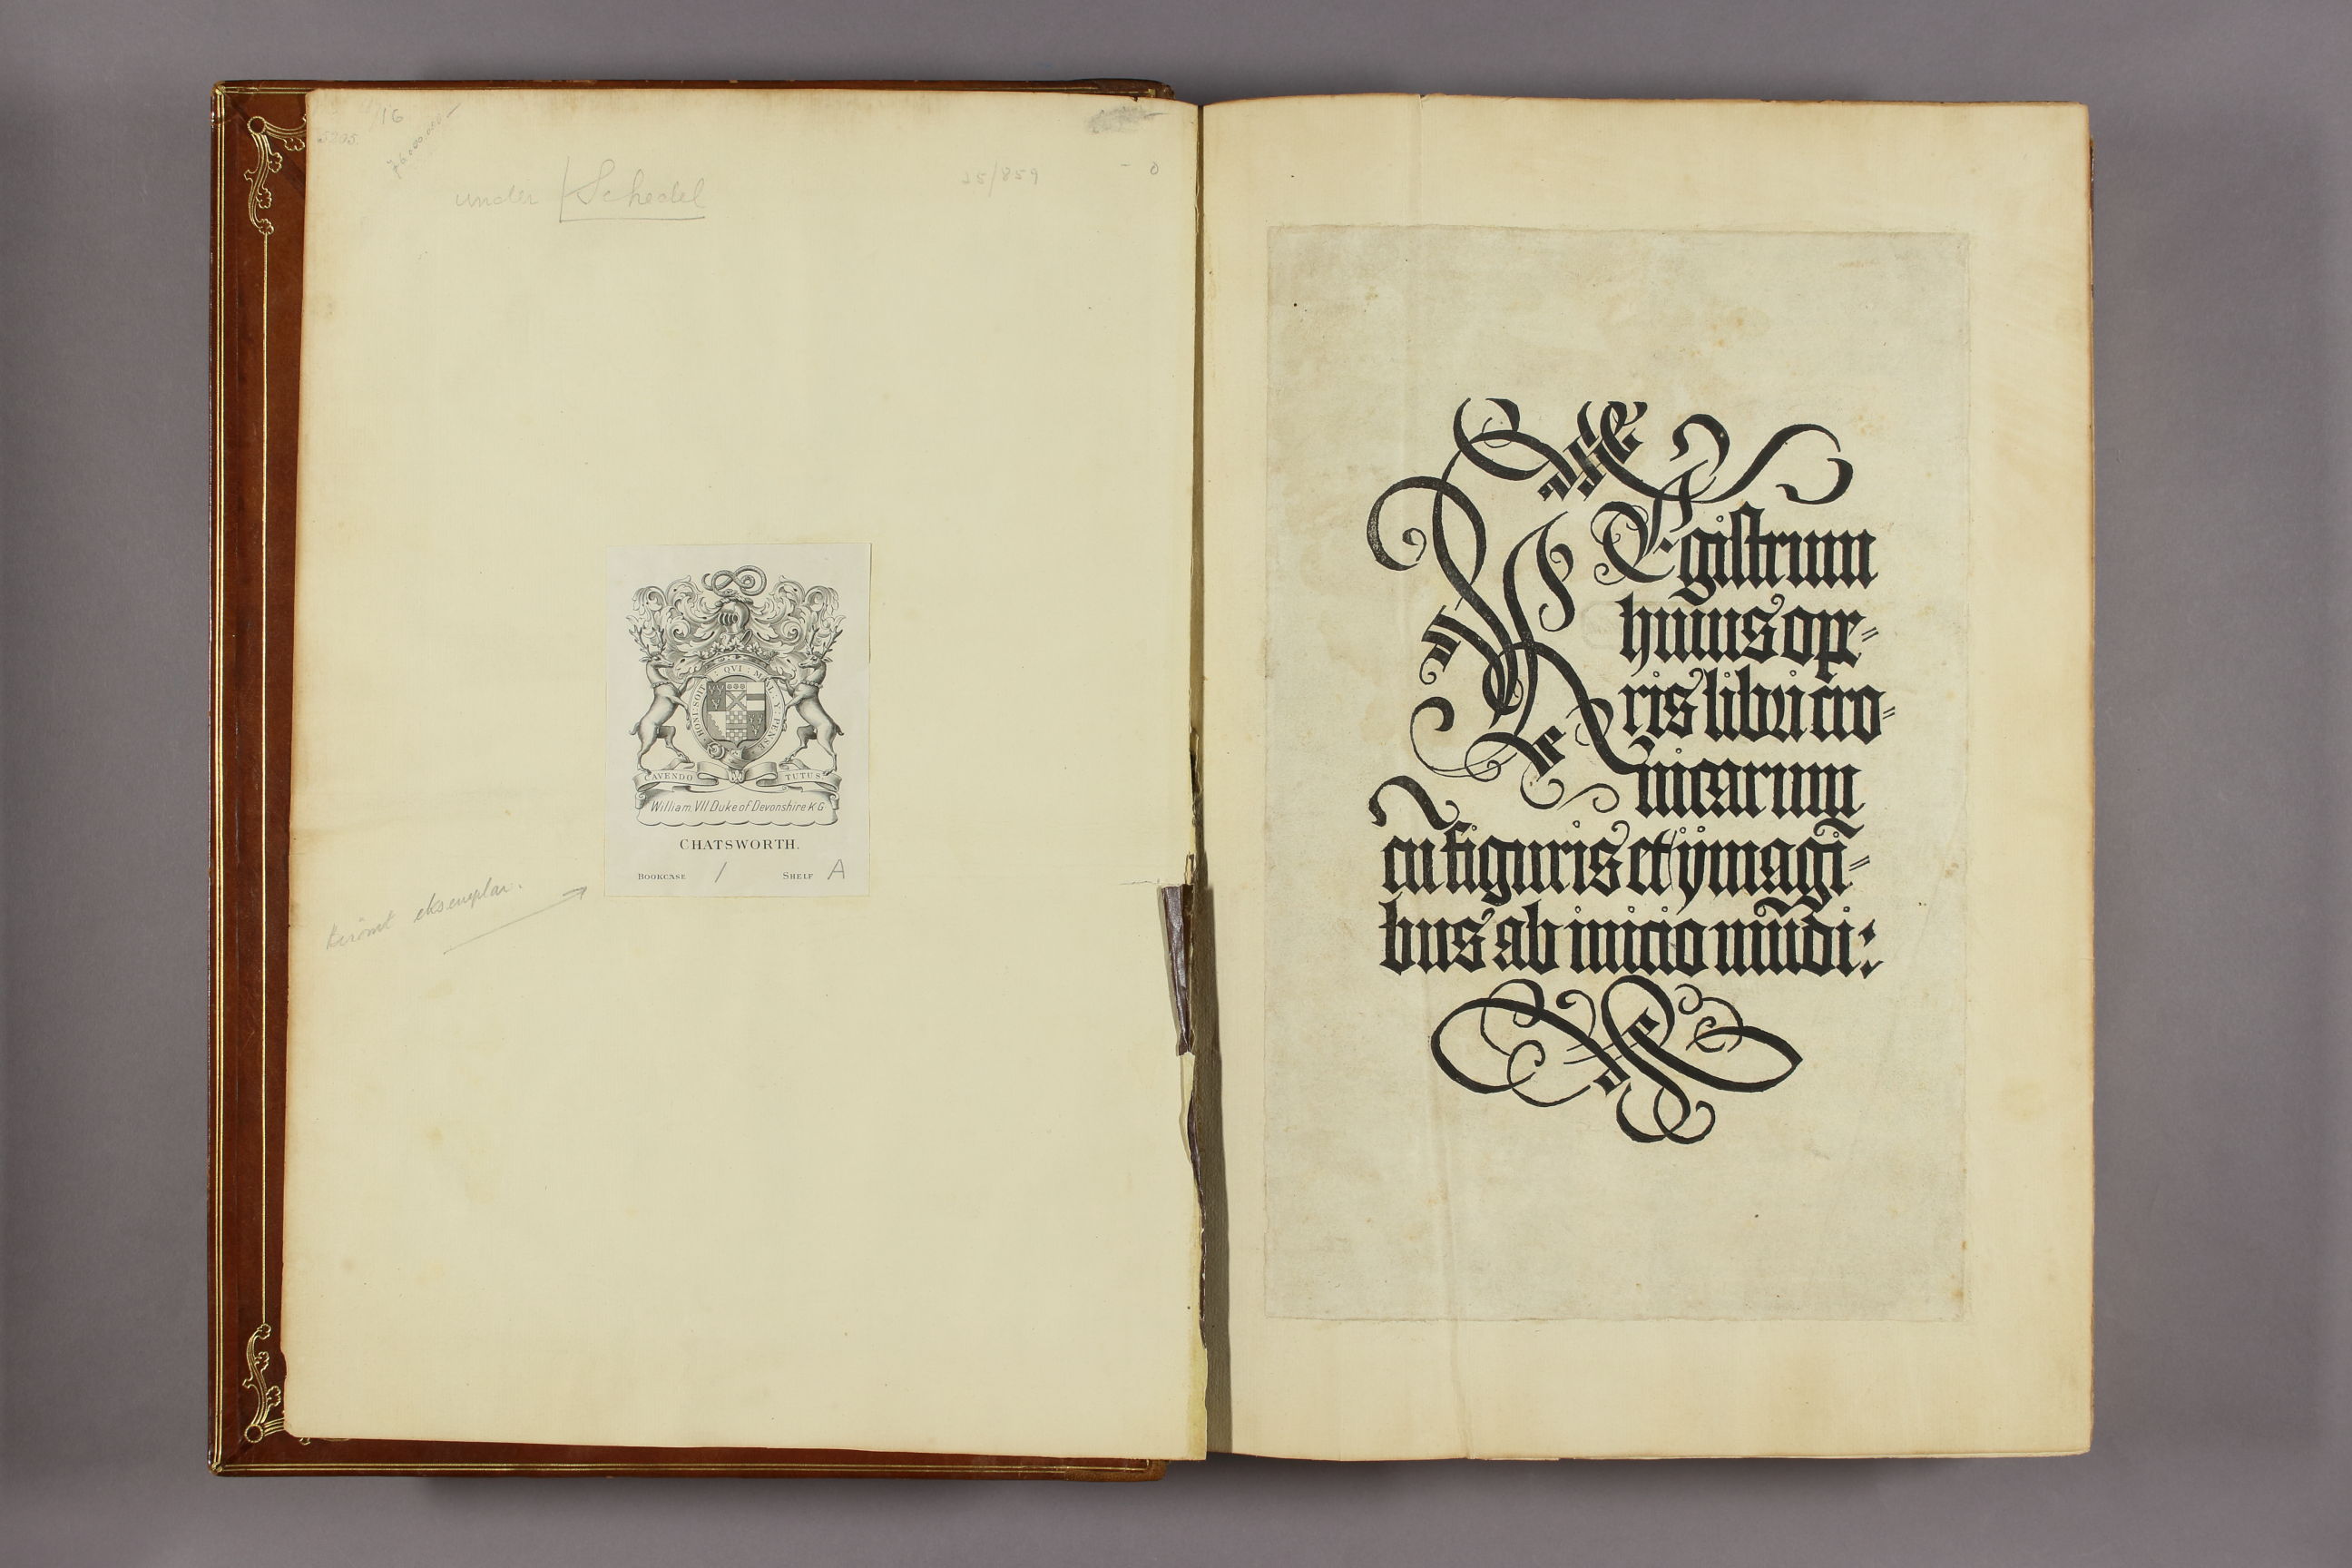 16
5205
under Schedel
25/859
HONI·SOIT·QVI·MAL·Y·PENSE
CAVENDO TUTUS
William VII Duke of Devonshire KG
CHATSWORTH.
BOOKCASE 1 SHELF A
berömt eksemplar.
REgistrum
huius ope-
ris libri cro-
nicarum
cū figuris et ijmagī-
bus ab inicio mūdi: